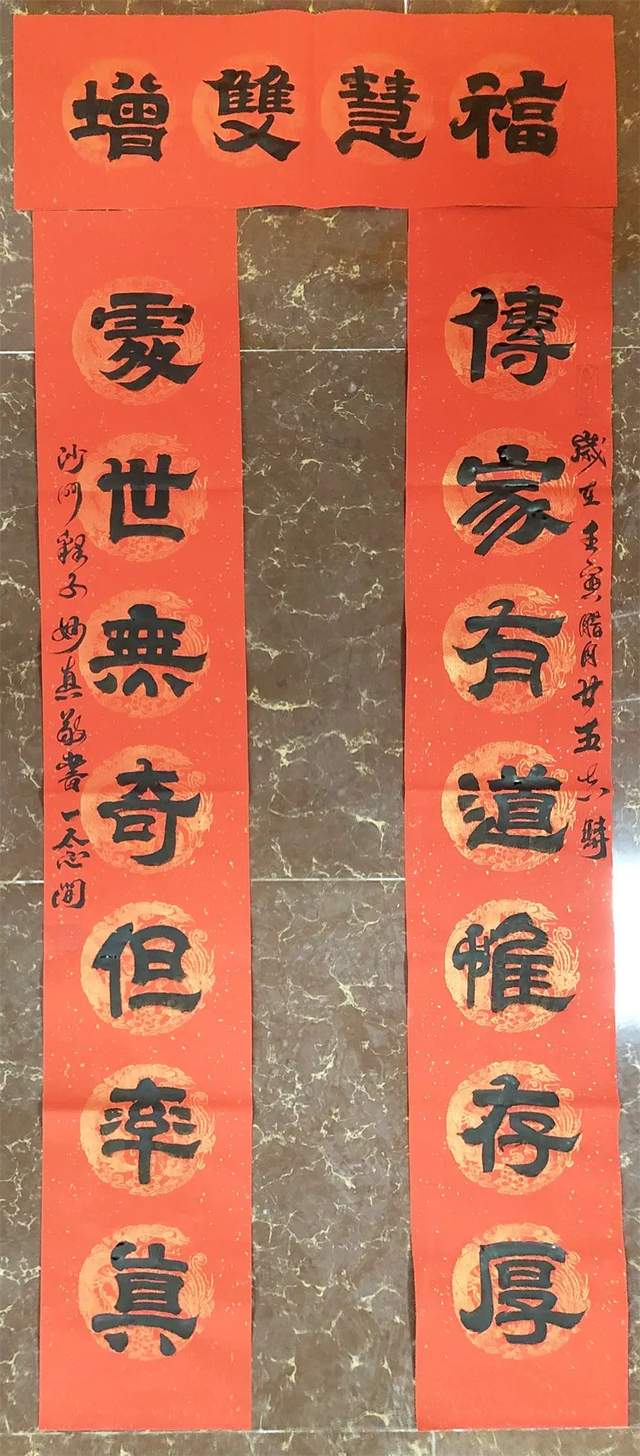 福慧雙增
傳家有道惟存厚
歲在壬寅腊月廿五吉時
處世無奇但率真
沙門釋子妙真敬書一念間